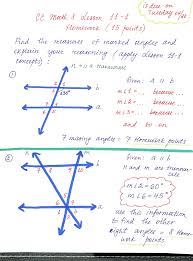 CC Math 1 Lesson 11-1
Homework (15 points)
is due on
Tuesday
Find the measures of marked angles and
explain your reasoning (apply lesson 11-1
concepts):
①
n + a transversal
Given: a || b
m∠1 = ... because
m∠2 = ... because
m∠3 = ... because
and so on
a
b
7 missing angles - 7 Homework points
②
Given a || b
n and m are transver-
sals
m∠2 = 60°
m∠6 = 45°
use this information
to find the other
eight angles = 8 Home-
work points
a
b